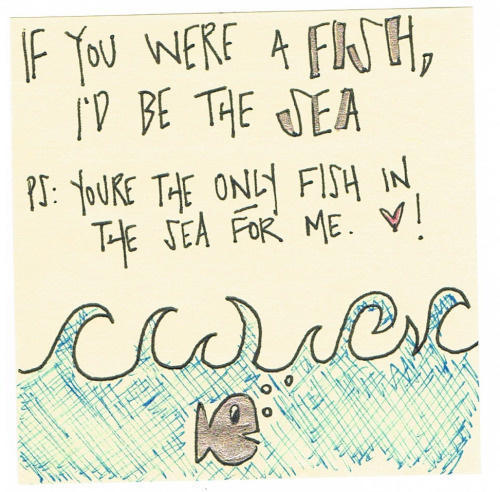 IF YOU WERE A FISH,
I'D BE THE SEA
PS: YOURE THE ONLY FISH IN
THE SEA FOR ME. ♥!